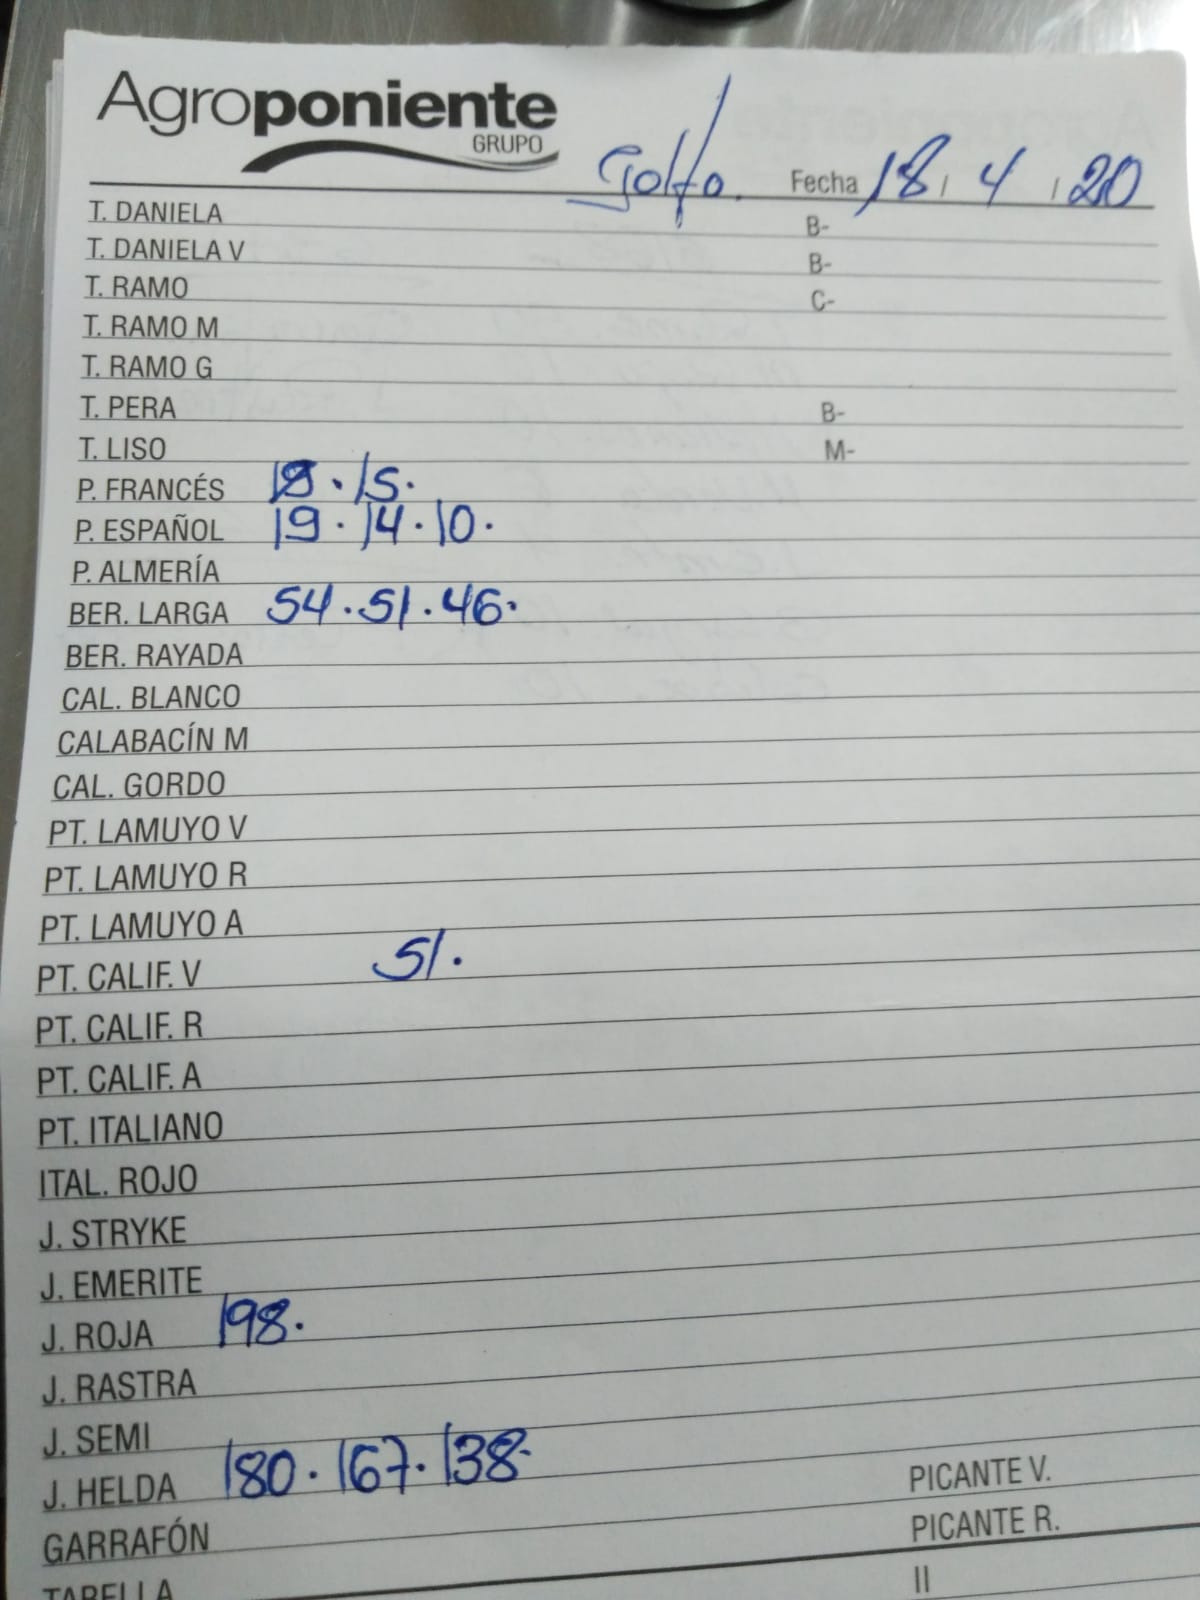 Agroponiente
GRUPO
Golfo. Fecha 18/4/20
T. DANIELA B-
T. DANIELA V B-
T. RAMO C-
T. RAMO M
T. RAMO G
T. PERA B-
T. LISO M-
P. FRANCÉS 18.15.
P. ESPAÑOL 19.14.10.
P. ALMERÍA
BER. LARGA 54.51.46.
BER. RAYADA
CAL. BLANCO
CALABACÍN M
CAL. GORDO
PT. LAMUYO V
PT. LAMUYO R
PT. LAMUYO A
PT. CALIF. V 51.
PT. CALIF. R
PT. CALIF. A
PT. ITALIANO
ITAL. ROJO
J. STRYKE
J. EMERITE
J. ROJA 198.
J. RASTRA
J. SEMI
J. HELDA 180.167.138. PICANTE V.
GARRAFÓN PICANTE R.
TABELLA II